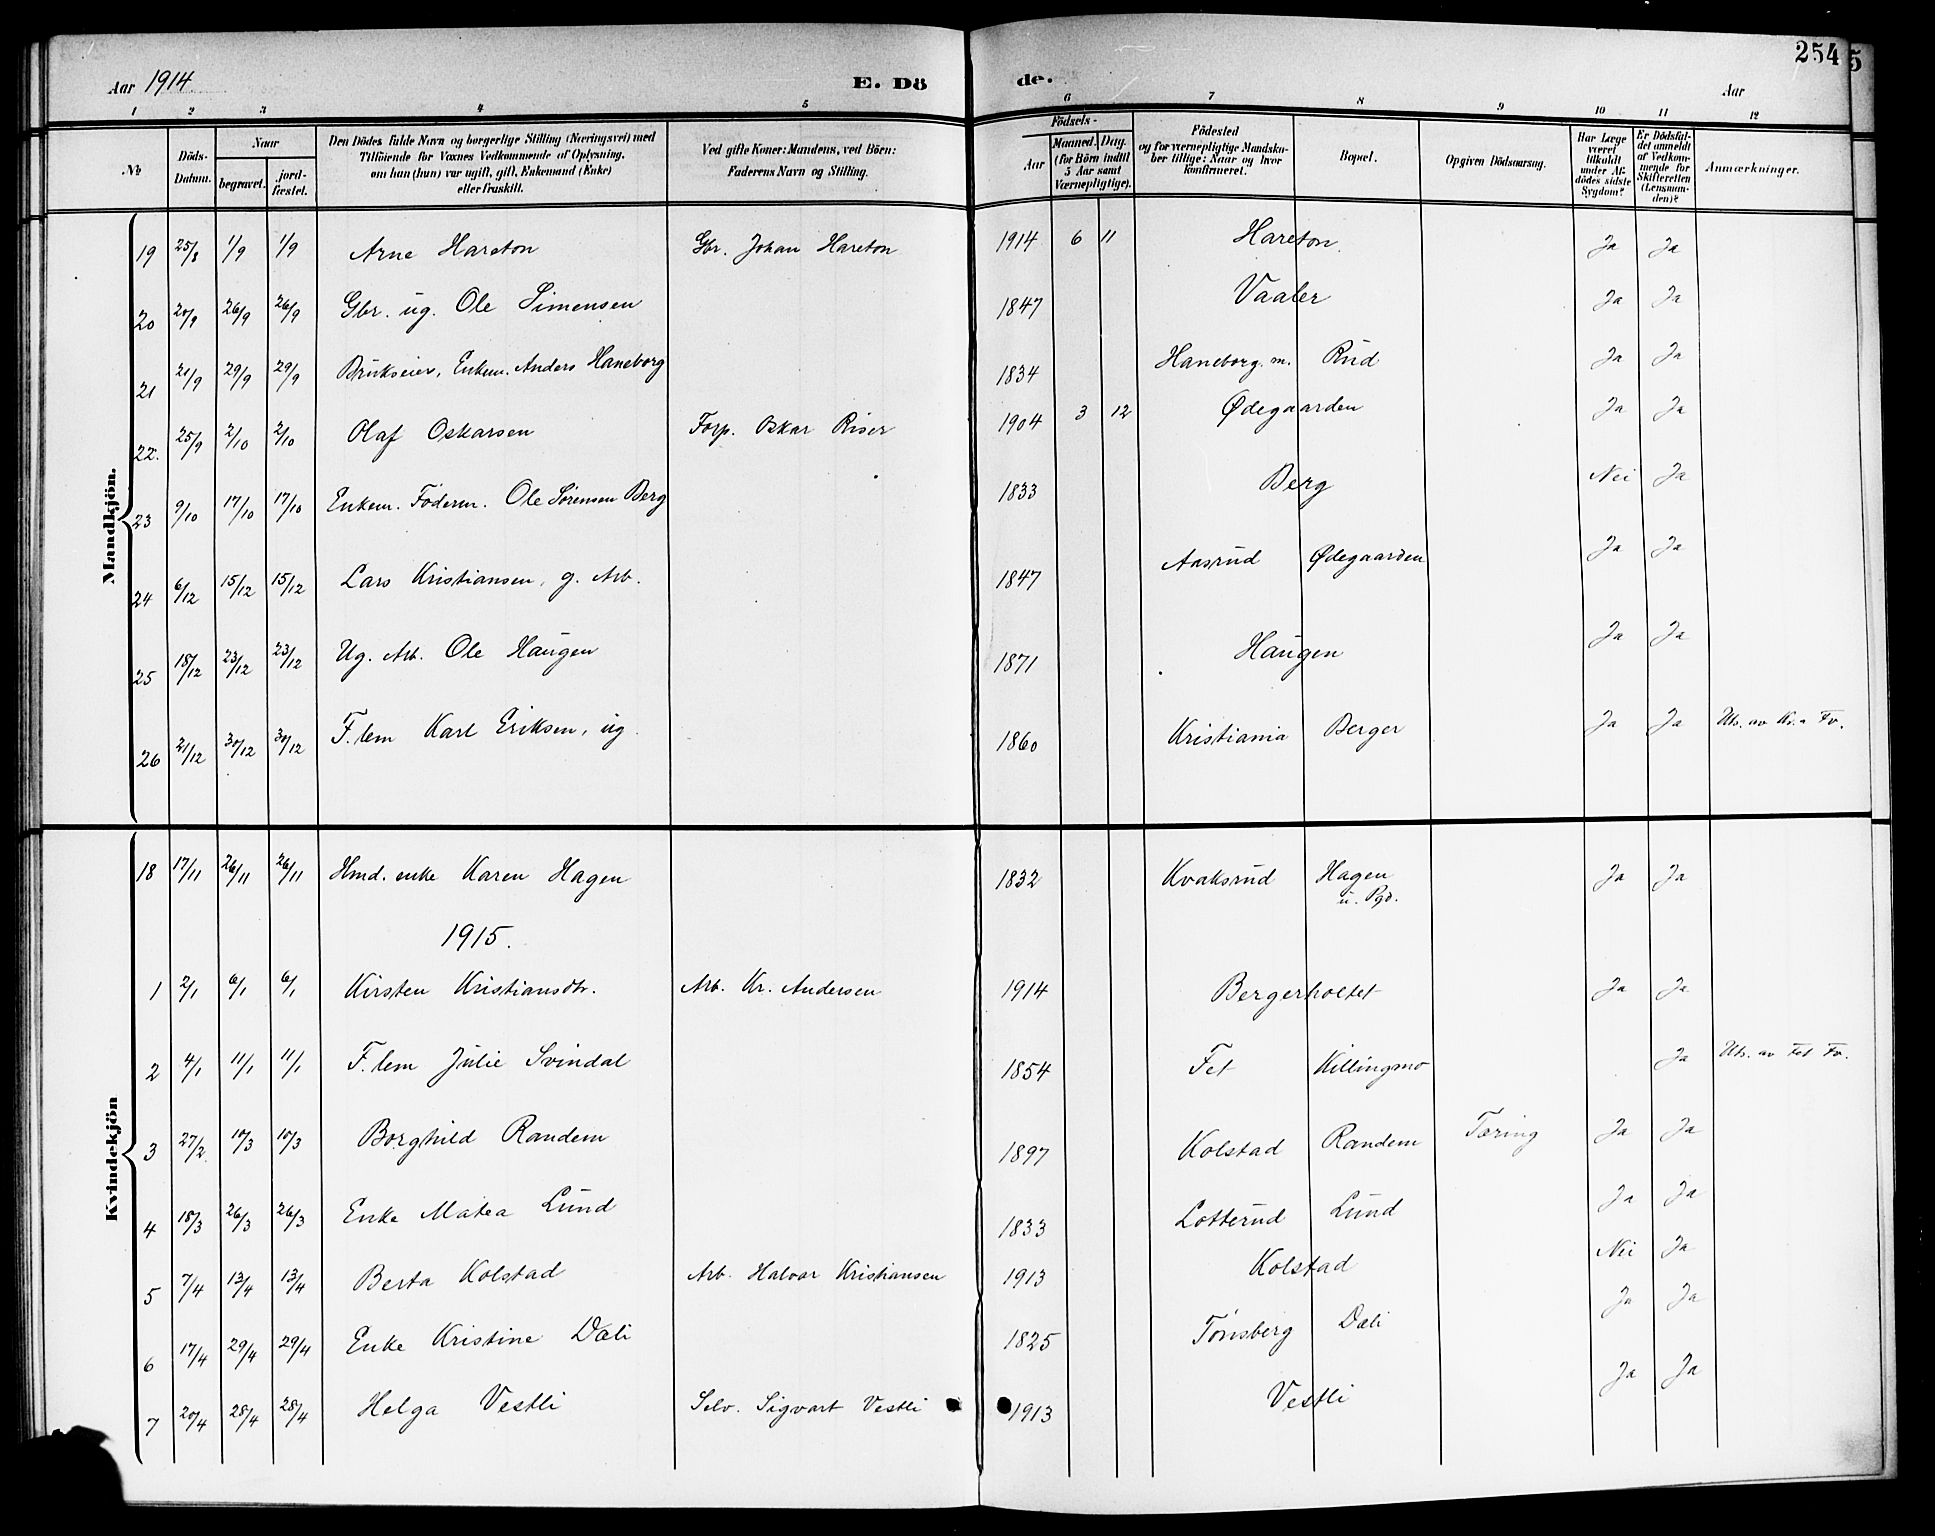 254
5
Aar 1914
E. Dö
de.
Aar
1 2 3 4 5 6 7 8 9 10 11 12
No
Döds-Datum.
Naar
begravet.
jord-fæstet.
Den Dödes fulde Navn og borgerlige Stilling (Næringsvei) med
Tilföiende for Voxnes Vedkommende af Oplysning,
om han (hun) var ugift, gift, Enkemand (Enke)
eller fraskilt.
Ved gifte Koner: Mandens, ved Börn:
Faderens Navn og Stilling.
Födsels-
Aar
Maaned. Dag.
(for Börn indtil
5 Aar samt
Værnepligtige).
Födested
og for værnepligtige Mandska-
ber tillige: Naar og hvor
konfirmeret.
Bopæl.
Opgiven Dödsaarsag.
Har Læge
været
tilkaldt
under Af-
dödes sidste
Sygdom?
Er Dödsfal-
det anmeldt
af Vedkom-
mende for
Skifteretten
(Lensman-
den)?
Anmærkninger.
Mandkjön.
19 25/8 1/9 1/9 Arne Hareton Gbr. Johan Hareton 1914 6 11 Hareton Ja Ja
20 20/9 26/9 26/9 Gbr. ug. Ole Simensen 1847 Vaaler Ja Ja
21 21/9 29/9 29/9 Brukseier, Enkem. Anders Haneborg 1834 Haneborg. m. Rud Ja Ja
22. 25/9 2/10 2/10 Olaf Oskarsen Forp. Oskar Riser 1904 3 12 Ødegaarden Ja Ja
23 9/10 17/10 17/10 Enkem. Föderm. Ole Sørensen Berg 1833 Berg Nei Ja
24 6/12 15/12 15/12 Lars Kristiansen, g. Arb. 1847 Aasrud Ødegaarden Ja Ja
25 18/12 23/12 23/12 Ug. Arb. Ole Haugen 1871 Haugen Ja Ja
26 21/12 30/12 30/12 F.lem Karl Eriksen, ug. 1860 Kristiania Berger Ja Ja Uts. av Kr.a Fv.
Kvindekjön
18 17/11 26/11 26/11 Hmd. enke Karen Hagen 1832 Kvaksrud Hagen u. Pgd. Ja Ja
1915.
1 2/1 6/1 6/1 Kirsten Kristiansdtr. Arb. Kr. Andersen 1914 Bergerholtet Ja Ja
2 4/1 11/1 11/1 F.lem Julie Svindal 1854 Fet Killingmo Ja Uts. av Fet Fv.
3 27/2 10/3 10/3 Borghild Randem 1897 Kolstad Randem Tæring Ja Ja
4 18/3 26/3 26/3 Enke Matea Lund 1833 Lotterud Lund Ja Ja
5 7/4 13/4 13/4 Berta Kolstad Arb. Halvor Kristiansen 1913 Kolstad Nei Ja
6 17/4 29/4 29/4 Enke Kristine Dæli 1825 Tønsberg Dæli Ja Ja
7 20/4 28/4 28/4 Helga Vestli Selv. Sigvart Vestli 1913 Vestli Ja Ja